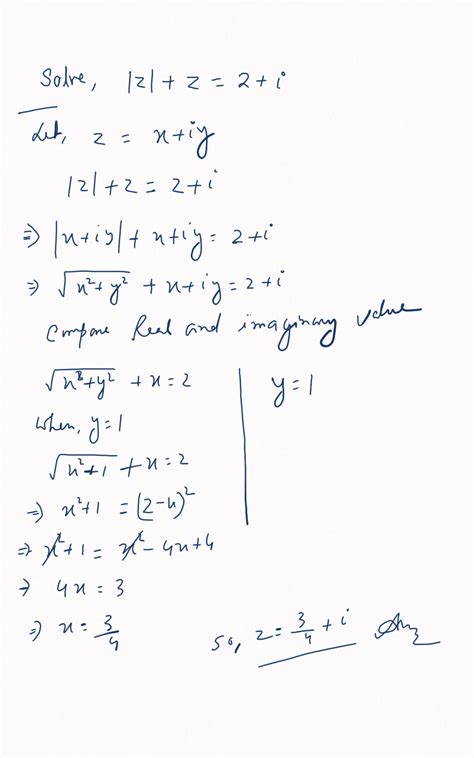 Solve, |z| + z = 2 + i
Let, z = x + iy
|z| + z = 2 + i
⇒ |x + iy| + x + iy = 2 + i
⇒ √(x² + y²) + x + iy = 2 + i
Compare Real and imaginary value
√(x² + y²) + x = 2
y = 1
When, y = 1
√(x² + 1) + x = 2
⇒ x² + 1 = (2 - x)²
⇒ x² + 1 = x² - 4x + 4
⇒ 4x = 3
⇒ x = 3/4
So, z = 3/4 + i Ans